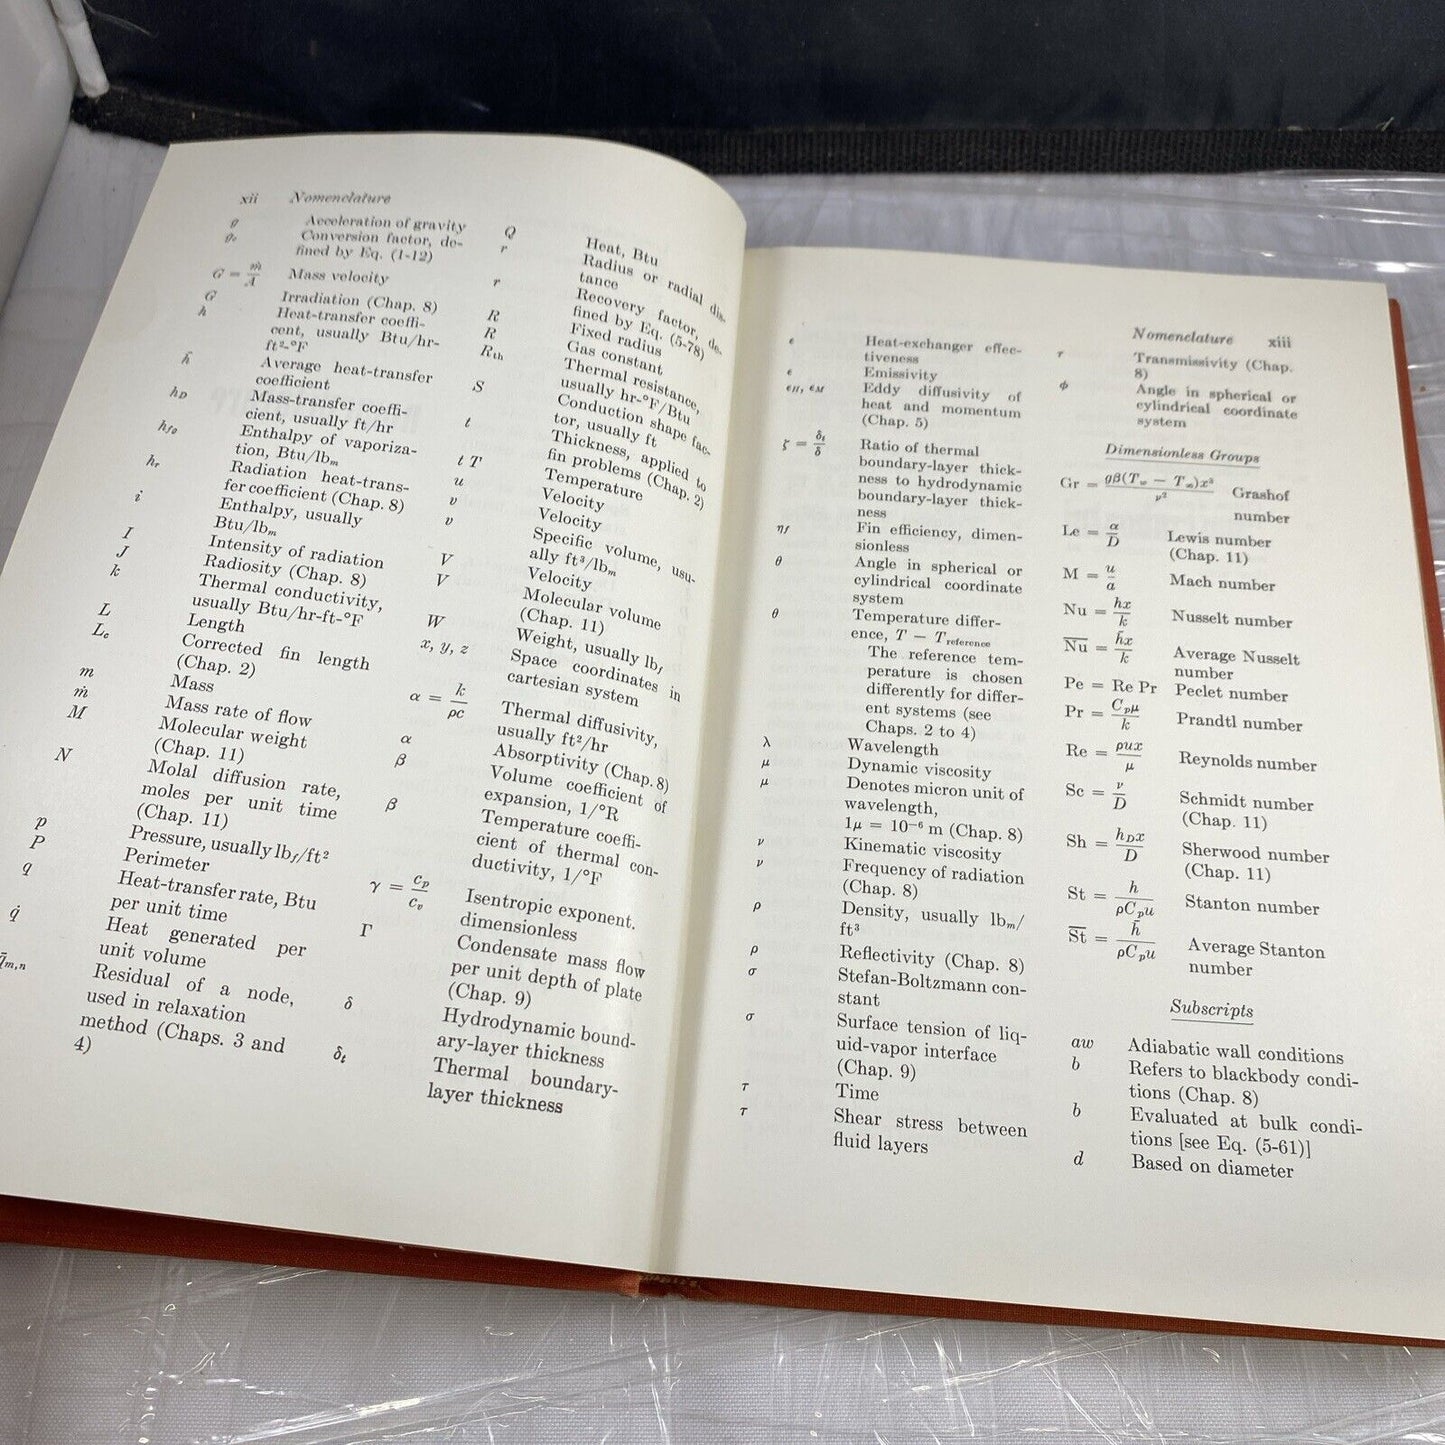 xii Nomenclature
g Acceleration of gravity
gc Conversion factor, de-
fined by Eq. (1-12)
G = ṁ/A Mass velocity
G Irradiation (Chap. 8)
h Heat-transfer coeffi-
cient, usually Btu/hr-
ft²-°F
h̄ Average heat-transfer
coefficient
hD Mass-transfer coeffi-
cient, usually ft/hr
hfg Enthalpy of vaporiza-
tion, Btu/lbm
hr Radiation heat-trans-
fer coefficient (Chap. 8)
i Enthalpy, usually
Btu/lbm
I Intensity of radiation
J Radiosity (Chap. 8)
k Thermal conductivity,
usually Btu/hr-ft-°F
L Length
Lc Corrected fin length
(Chap. 2)
m Mass
ṁ Mass rate of flow
M Molecular weight
(Chap. 11)
N Molal diffusion rate,
moles per unit time
(Chap. 11)
p Pressure, usually lbf/ft²
P Perimeter
q Heat-transfer rate, Btu
per unit time
q̇ Heat generated per
unit volume
q̄m,n Residual of a node,
used in relaxation
method (Chaps. 3 and
4)
Q Heat, Btu
r Radius or radial dis-
tance
r Recovery factor, de-
fined by Eq. (5-78)
R Fixed radius
R Gas constant
Rth Thermal resistance,
usually hr-°F/Btu
S Conduction shape fac-
tor, usually ft
t Thickness, applied to
fin problems (Chap. 2)
t T Temperature
u Velocity
v Velocity
v Specific volume, usu-
ally ft³/lbm
V Velocity
V Molecular volume
(Chap. 11)
W Weight, usually lbf
x, y, z Space coordinates in
cartesian system
α = k/ρc Thermal diffusivity,
usually ft²/hr
α Absorptivity (Chap. 8)
β Volume coefficient of
expansion, 1/°R
β Temperature coeffi-
cient of thermal con-
ductivity, 1/°F
γ = cp/cv Isentropic exponent.
dimensionless
Γ Condensate mass flow
per unit depth of plate
(Chap. 9)
δ Hydrodynamic bound-
ary-layer thickness
δt Thermal boundary-
layer thickness
Nomenclature xiii
ϵ Heat-exchanger effec-
tiveness
ϵ Emissivity
ϵH, ϵM Eddy diffusivity of
heat and momentum
(Chap. 5)
ζ = δt/δ Ratio of thermal
boundary-layer thick-
ness to hydrodynamic
boundary-layer thick-
ness
ηf Fin efficiency, dimen-
sionless
θ Angle in spherical or
cylindrical coordinate
system
θ Temperature differ-
ence, T − Treference
The reference tem-
perature is chosen
differently for differ-
ent systems (see
Chaps. 2 to 4)
λ Wavelength
μ Dynamic viscosity
μ Denotes micron unit of
wavelength,
1μ = 10⁻⁶ m (Chap. 8)
ν Kinematic viscosity
ν Frequency of radiation
(Chap. 8)
ρ Density, usually lbm/
ft³
ρ Reflectivity (Chap. 8)
σ Stefan-Boltzmann con-
stant
σ Surface tension of liq-
uid-vapor interface
(Chap. 9)
τ Time
τ Shear stress between
fluid layers
τ Transmissivity (Chap.
8)
ϕ Angle in spherical or
cylindrical coordinate
system
Dimensionless Groups
Gr = gβ(Tw − T∞)x³/ν² Grashof
number
Le = α/D Lewis number
(Chap. 11)
M = u/a Mach number
Nu = hx/k Nusselt number
N̅u̅ = h̄x/k Average Nusselt
number
Pe = Re Pr Peclet number
Pr = Cpμ/k Prandtl number
Re = ρux/μ Reynolds number
Sc = ν/D Schmidt number
(Chap. 11)
Sh = hDx/D Sherwood number
(Chap. 11)
St = h/ρCpu Stanton number
S̅t̅ = h̄/ρCpu Average Stanton
number
Subscripts
aw Adiabatic wall conditions
b Refers to blackbody condi-
tions (Chap. 8)
b Evaluated at bulk condi-
tions [see Eq. (5-61)]
d Based on diameter